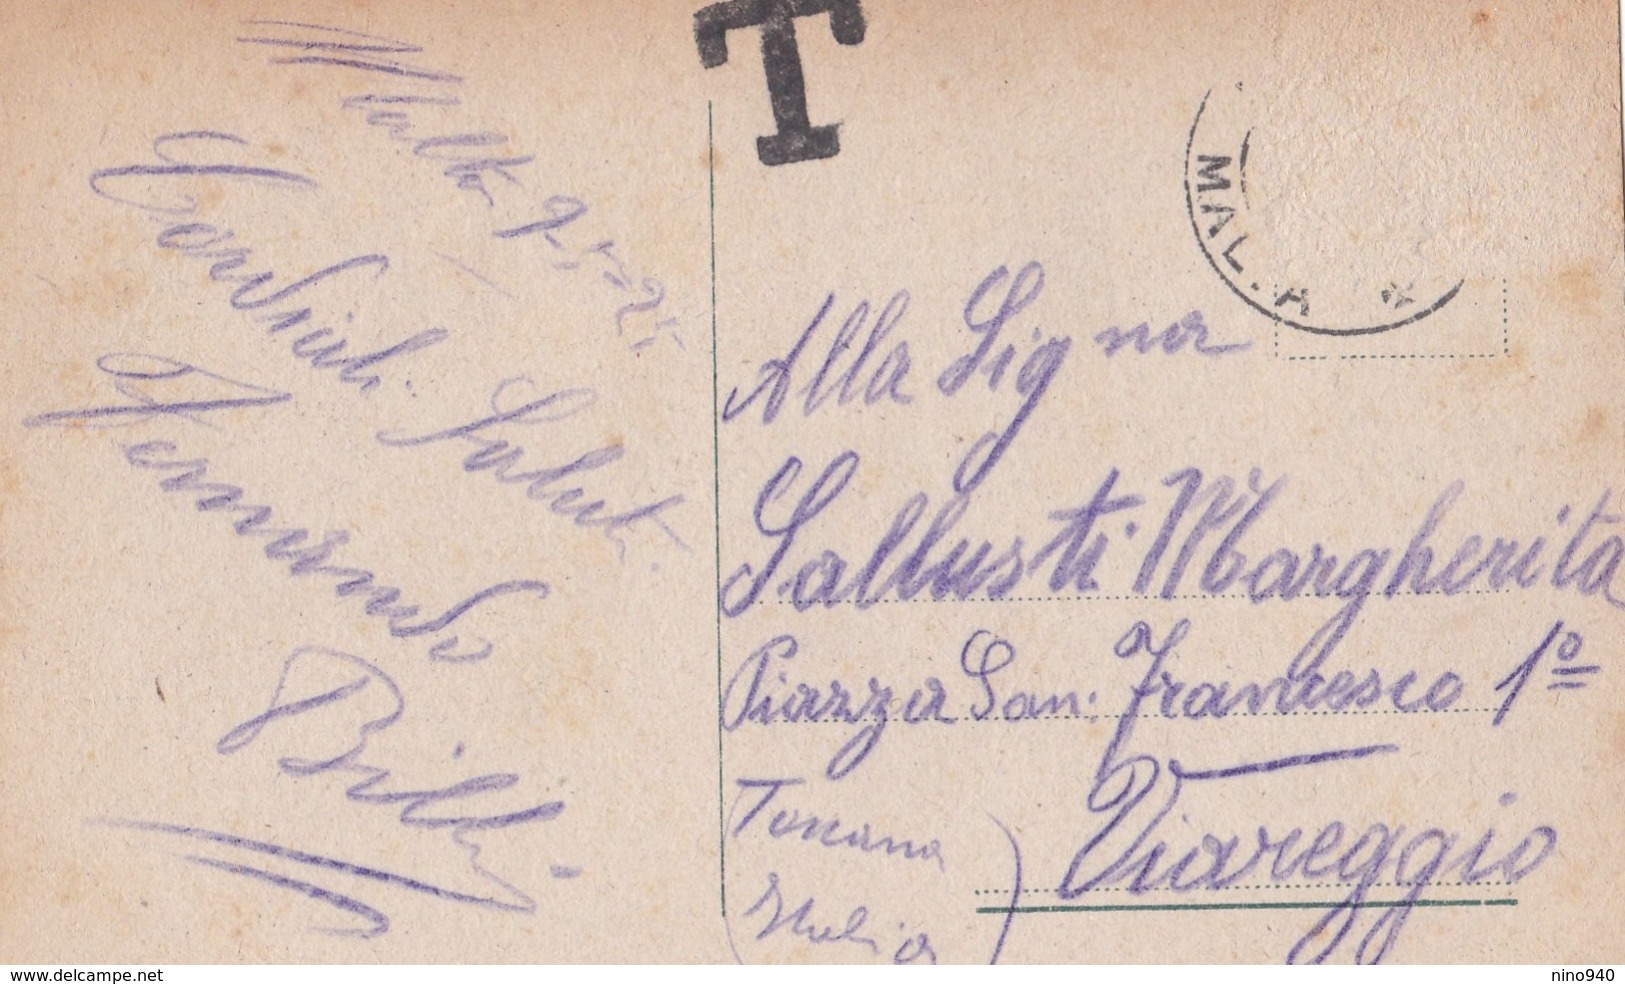 T
MALTA
Malta 9-5-25
Cordiali Saluti
Fernando
Billi
Alla Signa
Sallusti Margherita
Piazza San: Francesco 1º
Viareggio
(Toscana
Italia)
www.delcampe.net
nino940